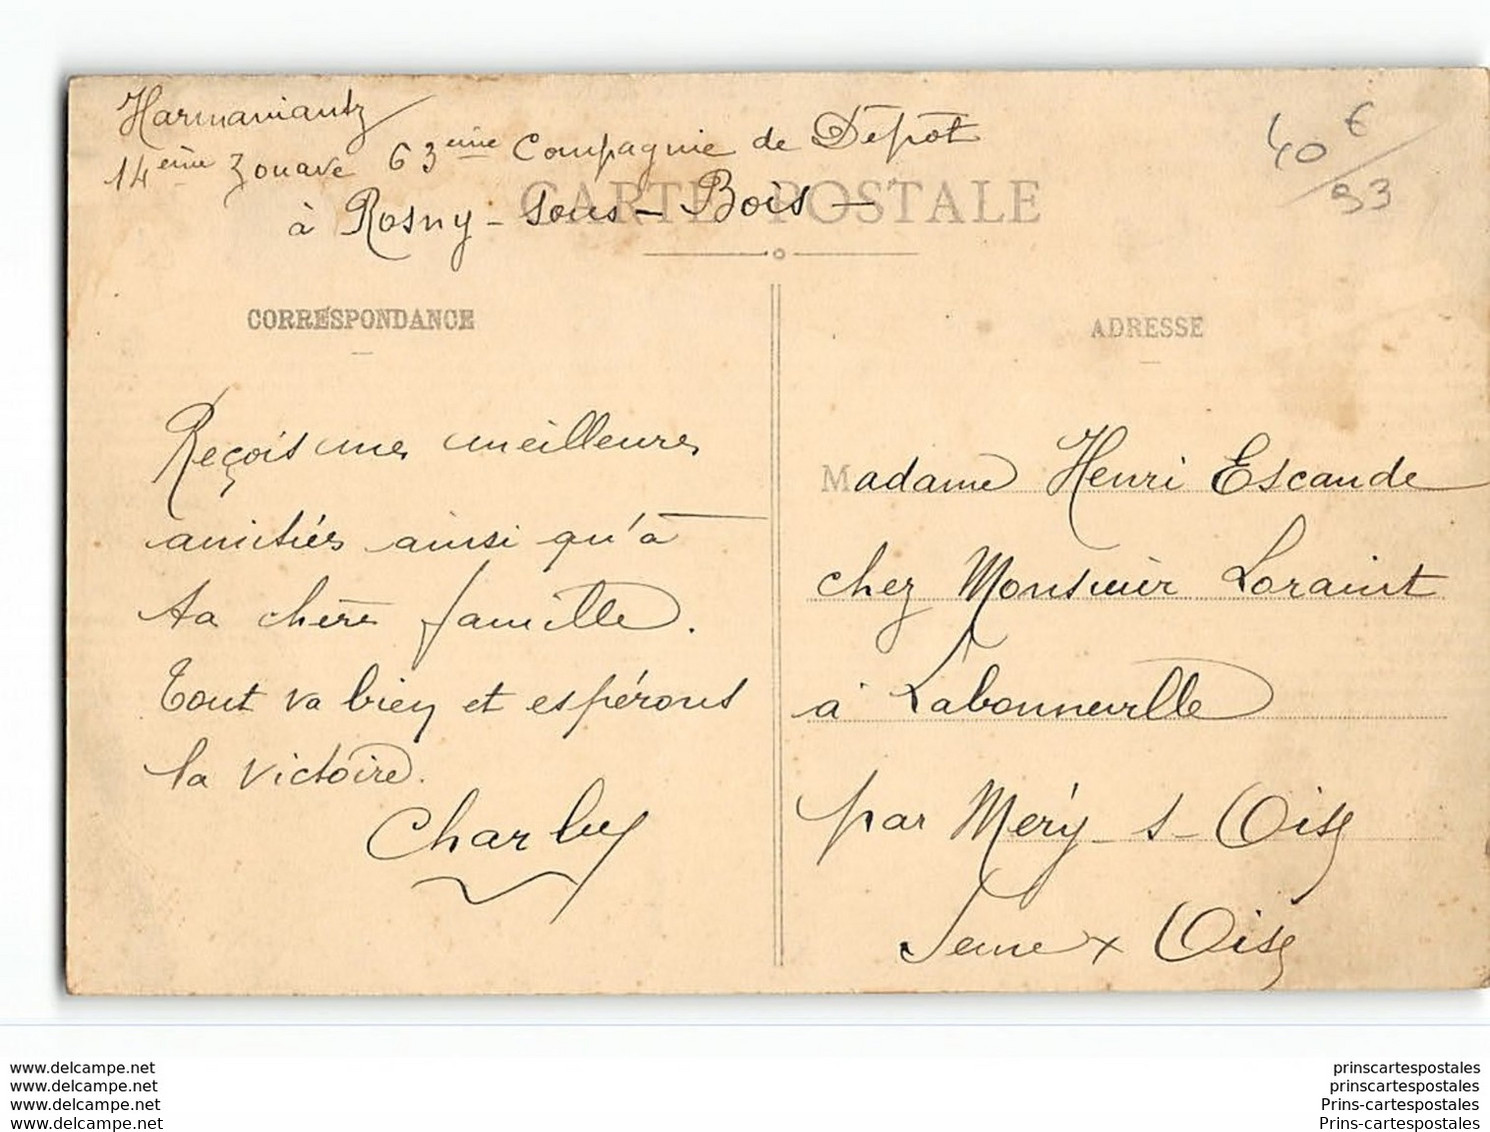 Harmaniantz
14ème Zouave 63ème Compagnie de Dépôt
à Rosny-sous-Bois-
40 €
93
CARTE POSTALE
CORRESPONDANCE
ADRESSE
Reçois mes meilleures
amitiés ainsi qu'à
ta chère famille.
Tout va bien et espérons
la victoire.
Charley
Madame Henri Escande
chez Monsieur Loraint
à Labonneville
par Méry-s-Oise
Seine x Oise
www.delcampe.net
www.delcampe.net
www.delcampe.net
www.delcampe.net
prinscartespostales
prinscartespostales
Prins-cartespostales
Prins-cartespostales